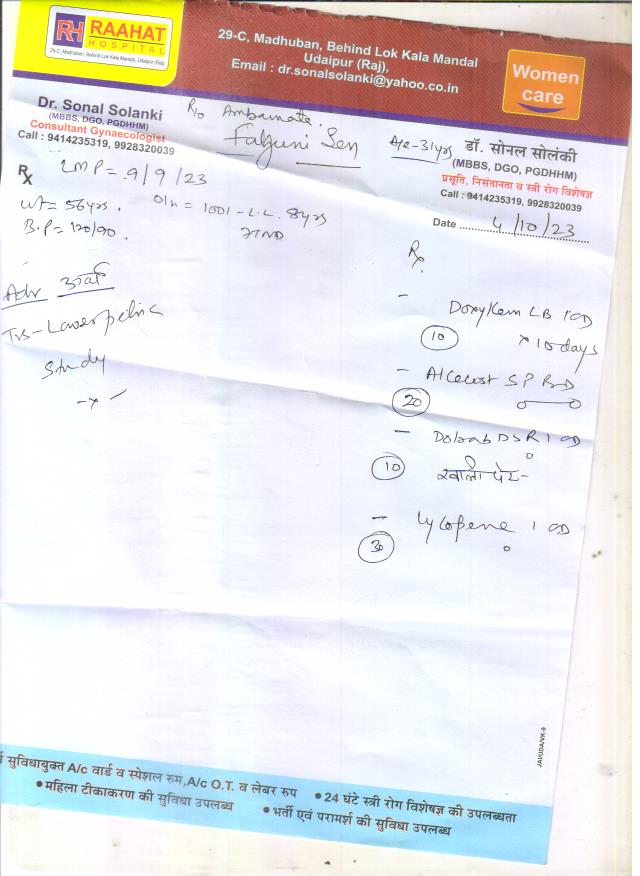 RH RAAHAT
HOSPITAL
29-C, Madhuban, Behind Lok Kala Mandal, Udaipur (Raj)
29-C, Madhuban, Behind Lok Kala Mandal
Udaipur (Raj),
Email : dr.sonalsolanki@yahoo.co.in
Women
care
Dr. Sonal Solanki
(MBBS, DGO, PGDHHM)
Consultant Gynaecologist
Call : 9414235319, 9928320039
R/o Ambamata.
Falguni Sen
Age-31yrs
डॉ. सोनल सोलंकी
(MBBS, DGO, PGDHHM)
प्रसूति, निसंतानता व स्त्री रोग विशेषज्ञ
Call : 9414235319, 9928320039
Date 4/10/23
Rx LMP = 9/9/23
Wt = 56yrs. O/h = 1001 - L.L. 8yrs
B.P = 120/90.
Adv
TVS - Lower pelvic
Study
Rx
- Doxykem LB 1 OD
10 x 10 days
- SP BD
20
- DSR 1 OD
10 खाली पेट -
- Lycopene 1 OD
30
JAYUDA/VK-9
सुविधायुक्त A/c वार्ड व स्पेशल रुम,A/c O.T. व लेबर रुप • 24 घंटे स्त्री रोग विशेषज्ञ की उपलब्धता
• महिला टीकाकरण की सुविधा उपलब्ध • भर्ती एवं परामर्श की सुविधा उपलब्ध